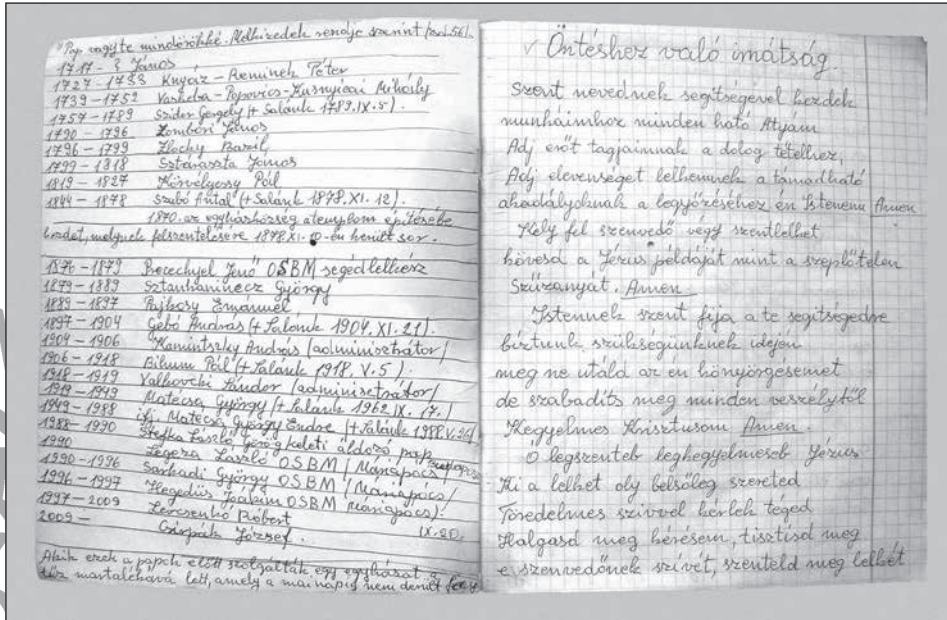 "Pap vagy te mindörökké Melkizedek rendje szerint (zsol. 56).
1717 - ? János
1727 - 1733 Knyáz - Reminek Péter
1739 - 1752 Popovics - Zusnyicai Mihály
1757 - 1789 Szidor Gergely (+ Salánk 1789. IX. 5).
1790 - 1796 Zombori János
1796 - 1799 Zlochy Bazil,
1799 - 1818 Sztáraszta János
1819 - 1827 Kösvélyessy Pál
1844 - 1878 Szabó Antal (+ Salánk 1878. XI. 12).
1870. az egyházközség a templom építésébe
kezdet, melynek felszentelésére 1878 XI. 10-én került sor.
1876 - 1879 Jenő OSBM segédlelkész
1879 - 1889 Sztankaninecz György
1889 - 1897 Pajkosy Emánuel
1897 - 1904 Gebó András (+ Salánk 1904. XI. 21).
1904 - 1906 Kaminszky András (adminisztrátor)
1906 - 1918 Bihum Pál (+ Salánk 1918. V. 5).
1918 - 1919 Valkovcki Sándor (adminisztrátor)
1919 - 1949 Matecsa György (+ Salánk 1962 IX. 17.)
1949 - 1988 ifj. Matecsa György Endre (+ Salánk 1988. V. 26)
1988 - 1990 Stefka László görög keleti áldozó pap
1990 Legeza László OSBM (Máriapócs)
1990 - 1996 Sárkadi György OSBM (Máriapócs)
1996 - 1997 Hegedűs Joakim OSBM (Máriapócs).
1997 - 2009 Lercsenkó Róbert
2009 - Csirpák József. IX. 20.
Akik ezek a papok előtt szolgálták egy egyházat a
tűz martalékává lett, amely a mai napig nem derült fény
✓ Öntéshez való imátság.
Szent nevednek segítségével kezdek
munkáimhoz minden ható Atyám
Adj erőt tagjaimnak a dolog tételhez,
Adj elevenséget lelkemnek a támadható
akadályoknak a legyőzéséhez én Istenem Amen
Kely fel szenvedő végy szentlelket
kövesd a Jézus példáját mint a szeplőtelen
Szűzanyát. Amen.
Istennek szent fija a te segítségedre
bíztunk szükségünknek idején
meg ne utáld az én könyörgésemet
de szabadíts meg minden veszélytől
Kegyelmes Krisztusom Amen.
O legszenteb legkegyelmeseb Jézus
Ki a lelket oly belsőleg szereted
Töredelmes szívvel kérlek téged
Halgasd meg kérésem, tisztísd meg
e szenvedőnek szívét, szenteld meg lelkét